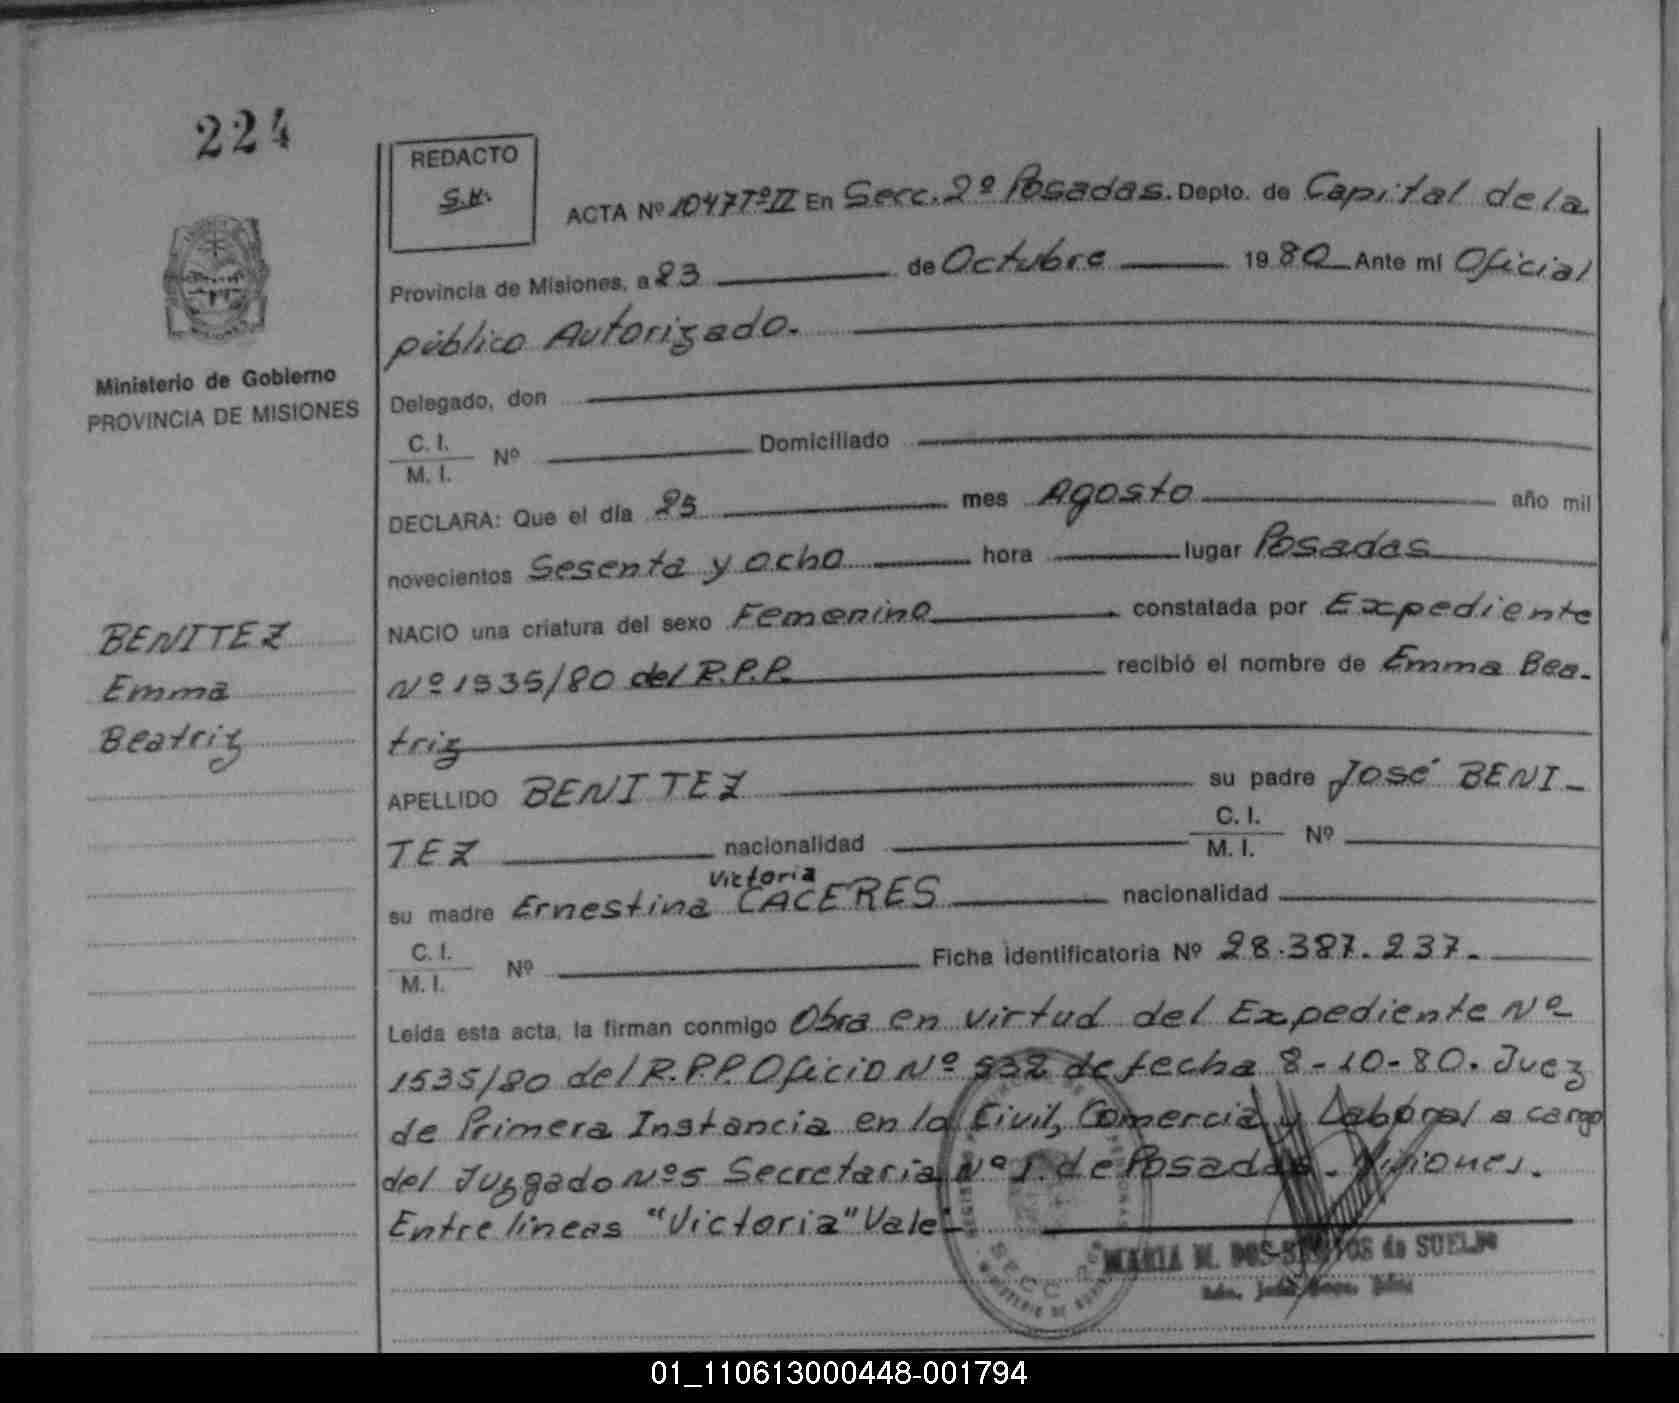 224
REDACTO
S.H.
ACTA Nº 1047 Tº II En Secc. 2º Posadas. Depto. de Capital de la
Provincia de Misiones, a 23 de Octubre 1980 Ante mí Oficial
público Autorizado.
Ministerio de Gobierno
PROVINCIA DE MISIONES
Delegado, don
C. I.
M. I. Nº Domiciliado
DECLARA: Que el día 25 mes Agosto año mil
novecientos Sesenta y ocho hora lugar Posadas
NACIO una criatura del sexo Femenino constatada por Expediente
Nº 1535/80 del R.P.P. recibió el nombre de Emma Bea-
triz
BENITEZ
Emma
Beatriz
APELLIDO BENITEZ su padre José BENI-
TEZ nacionalidad C. I.
M. I. Nº
Victoria
su madre Ernestina CACERES nacionalidad
C. I.
M. I. Nº Ficha identificatoria Nº 28.387.237.
Leída esta acta, la firman conmigo Obra en virtud del Expediente Nº
1535/80 del R.P.P. Oficio Nº 932 de fecha 8-10-80. Juez
de Primera Instancia en lo Civil, Comercial y Laboral a cargo
del Juzgado Nº 5 Secretaria Nº 1. de Posadas. Misiones.
Entre líneas "Victoria" Vale.-
MARIA M. DOS SANTOS de SUELDO
SECC
01_110613000448-001794